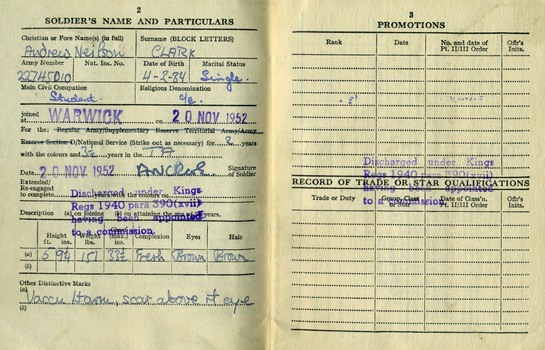 2
SOLDIER'S NAME AND PARTICULARS
Christian or Fore Name(s) (in full) Surname (BLOCK LETTERS)
Andrew Neilson CLARK
Army Number Nat. Ins. No. Date of Birth Marital Status
22745010 4-2-34 Single.
Main Civil Occupation Religious Denomination
Student. C/E.
joined at WARWICK on 20 NOV 1952
For the: Regular Army/Supplementary Reserve Territorial Army/Army
Reserve Section D/National Service (Strike out as necessary) for 2 years
with the colours and 3½ years in the
Date 20 NOV 1952 ANClark Signature of Soldier
Extended/
Re-engaged
to complete
Discharged under Kings
Regs 1940 para 390(xvii)
having been appointed
to a commission.
Description (a) on joining (b) on attaining the age of years.
Height ft. ins. Weight lbs. (max.) ins. Complexion Eyes Hair
(a) 5 9¼ 151 33½ Fresh Brown Brown
(b)
Other Distinctive Marks
(a) Vacc L Harm, scar above rt eye
(b)
3
PROMOTIONS
Rank Date No. and date of Pt. II/III Order Offr's Inits.
Discharged under Kings
Regs 1940 para 390(xvii)
having been appointed
to a commission.
RECORD OF TRADE OR STAR QUALIFICATIONS
Trade or Duty Group, Class or Star Date of Class'n. Pt. II/III Order Offr's Inits.